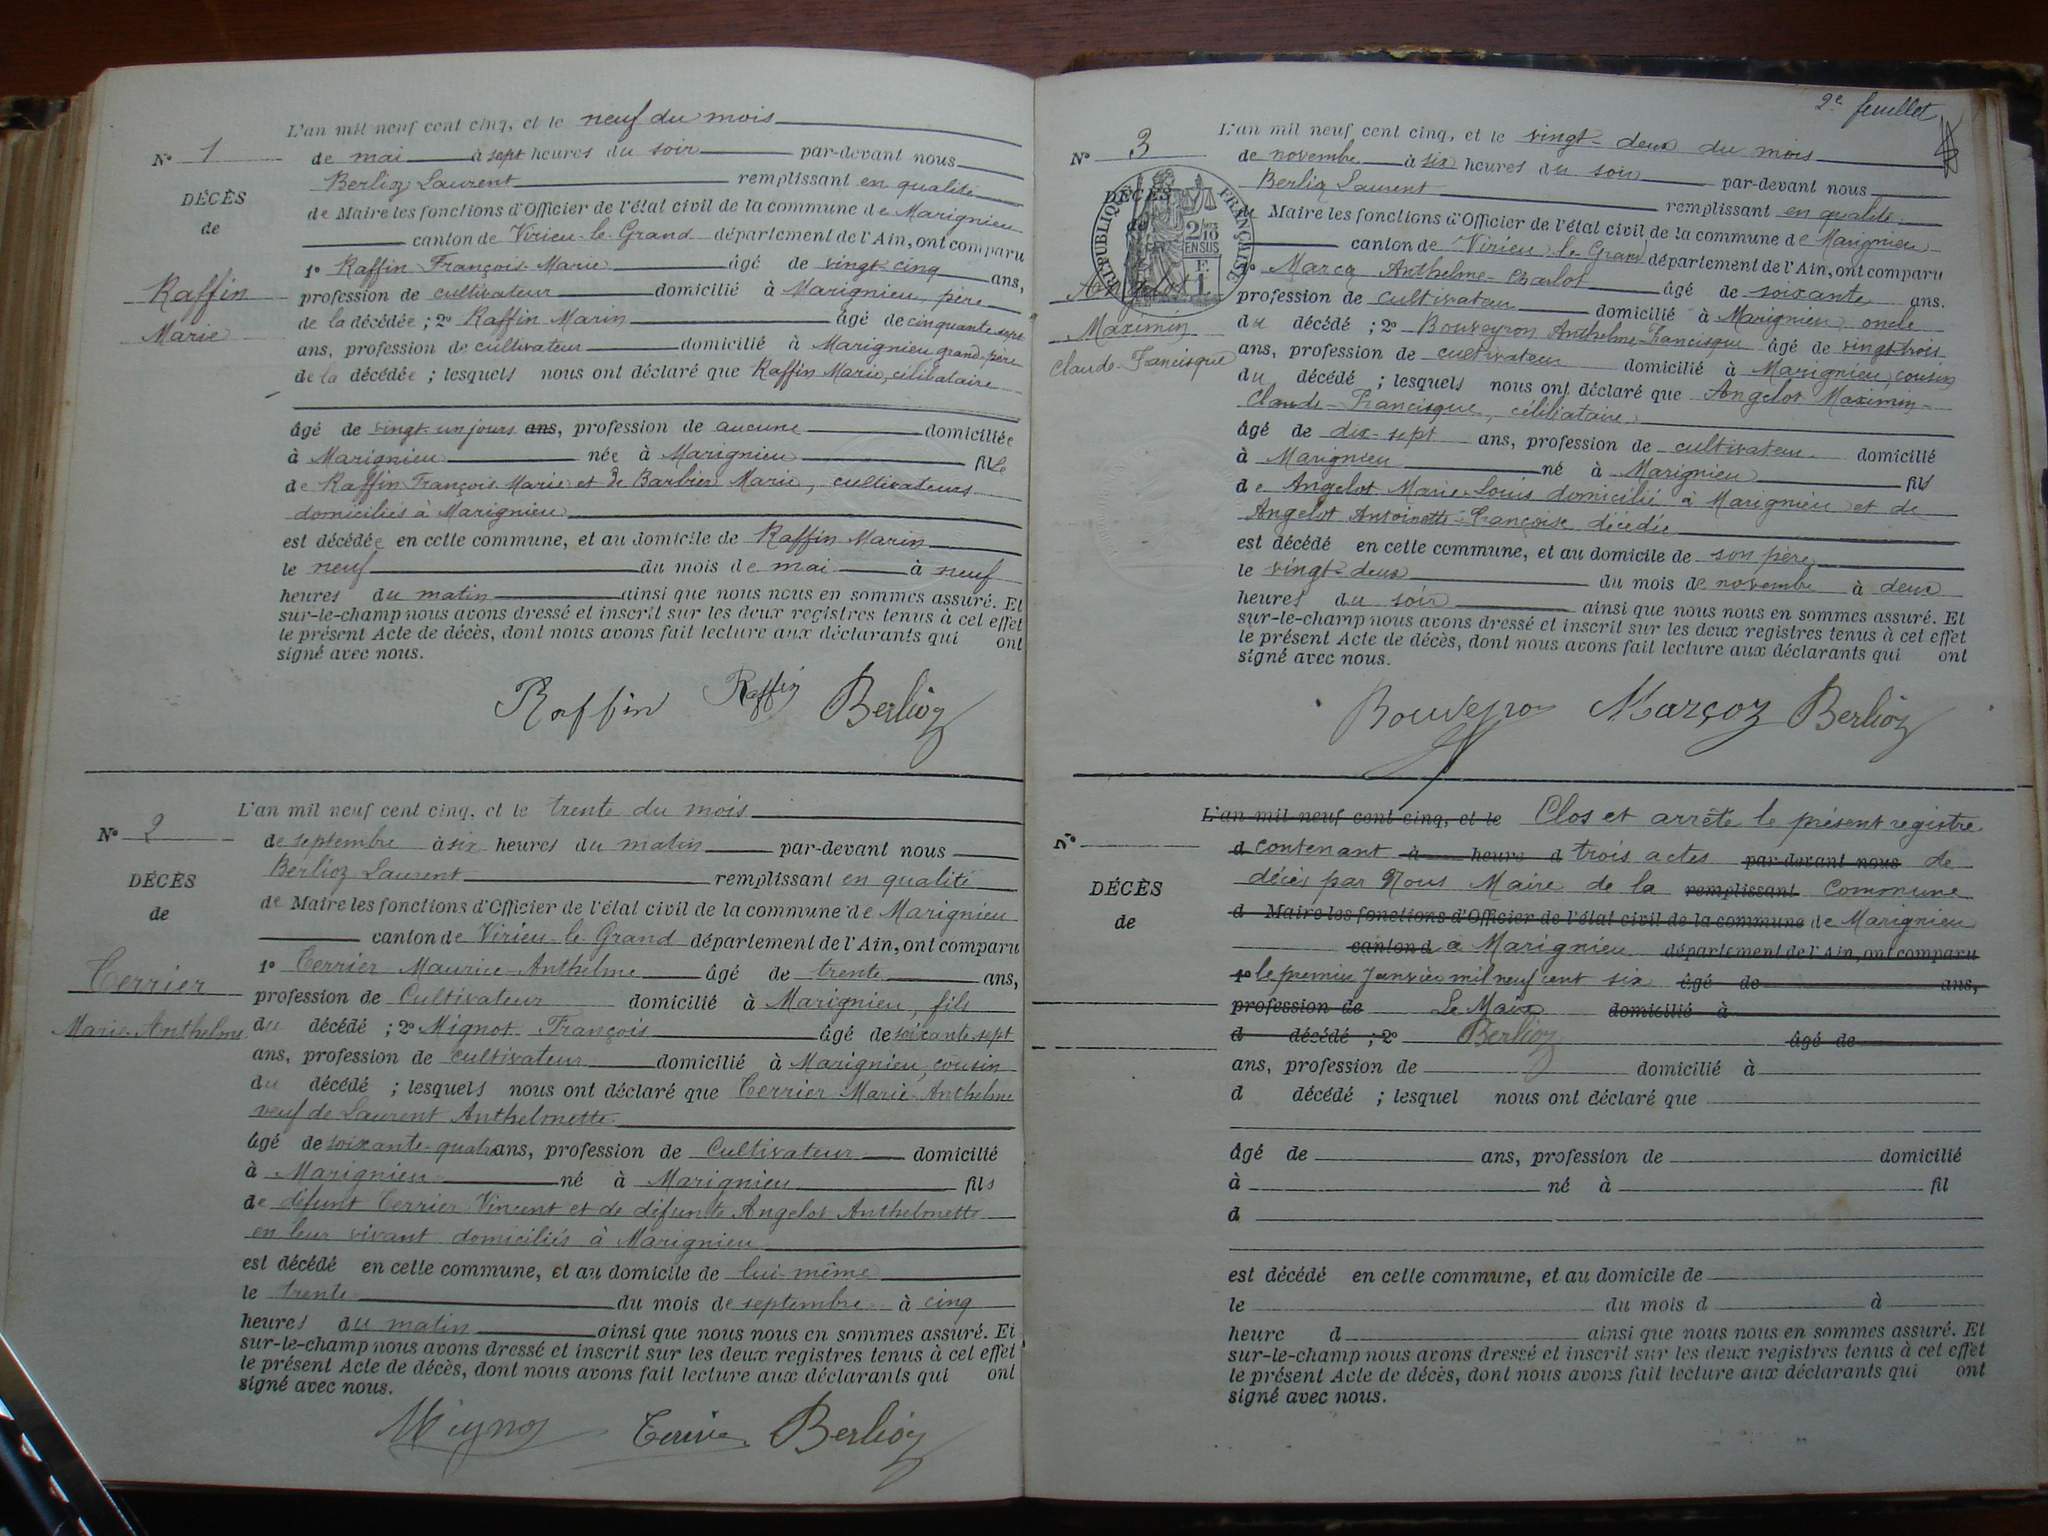 L'an mil neuf cent cinq, et le neuf du mois
N° 1 de mai à sept heures du soir par-devant nous
Berlioz Laurent remplissant en qualité
DÉCÈS
de Maire les fonctions d'Officier de l'état civil de la commune de Marignieu
de
canton de Virieu-le-Grand département de l'Ain, ont comparu
1° Raffin François-Marie âgé de vingt-cinq ans,
Raffin
profession de cultivateur domicilié à Marignieu, père
Marie
de la décédée ; 2° Raffin Marin âgé de cinquante-sept
ans, profession de cultivateur domicilié à Marignieu grand-père
de la décédée ; lesquels nous ont déclaré que Raffin Marie, célibataire
âgé de vingt-un jours ans, profession de aucune domiciliée
à Marignieu née à Marignieu fille
de Raffin François-Marie et de Barbier Marie, cultivateurs
domiciliés à Marignieu
est décédée en cette commune, et au domicile de Raffin Marin
le neuf du mois de mai à neuf
heures du matin ainsi que nous nous en sommes assuré. Et
sur-le-champ nous avons dressé et inscrit sur les deux registres tenus à cet effet
le présent Acte de décès, dont nous avons fait lecture aux déclarants qui ont
signé avec nous.
Raffin Raffin Berlioz
L'an mil neuf cent cinq, et le trente du mois
N° 2 de septembre à six heures du matin par-devant nous
Berlioz Laurent remplissant en qualité
DÉCÈS
de Maire les fonctions d'Officier de l'état civil de la commune de Marignieu
de
canton de Virieu-le-Grand département de l'Ain, ont comparu
1° Terrier Maurice-Anthelme âgé de trente ans,
Terrier
profession de Cultivateur domicilié à Marignieu, fils
Marie-Anthelme
du décédé ; 2° Mignot François âgé de soixante-sept
ans, profession de cultivateur domicilié à Marignieu, cousin
du décédé ; lesquels nous ont déclaré que Terrier Marie-Anthelme
veuf de Laurent Anthelmette
âgé de soixante-quatre ans, profession de Cultivateur domicilié
à Marignieu né à Marignieu fils
de défunt Terrier Vincent et de défunte Angelot Anthelmette
en leur vivant domiciliés à Marignieu
est décédé en cette commune, et au domicile de lui-même
le trente du mois de septembre à cinq
heures du matin ainsi que nous nous en sommes assuré. Et
sur-le-champ nous avons dressé et inscrit sur les deux registres tenus à cet effet
le présent Acte de décès, dont nous avons fait lecture aux déclarants qui ont
signé avec nous.
Berlioz
2e feuillet
L'an mil neuf cent cinq, et le vingt-deux du mois
N° 3 de novembre à six heures du soir par-devant nous
Berlioz Laurent remplissant en qualité
DÉCÈS
de
RÉPUBLIQUE FRANÇAISE
2/10 EN SUS
de Maire les fonctions d'Officier de l'état civil de la commune de Marignieu
canton de Virieu-le-Grand département de l'Ain, ont comparu
1° Marcoz Anthelme-Charlot âgé de soixante ans.
Angelot
profession de cultivateur domicilié à Marignieu, oncle
Maximin
du décédé ; 2° Bouveyron Anthelme-Francisque âgé de vingt-trois
Claude-Francisque
ans, profession de cultivateur domicilié à Marignieu, cousin
du décédé ; lesquels nous ont déclaré que Angelot Maximin-
Claude-Francisque, célibataire
âgé de dix-sept ans, profession de cultivateur domicilié
à Marignieu né à Marignieu fils
de Angelot Marie-Louis domicilié à Marignieu et de
Angelot Antoinette-Françoise décédée
est décédé en cette commune, et au domicile de son père
le vingt-deux du mois de novembre à deux
heures du soir ainsi que nous nous en sommes assuré. Et
sur-le-champ nous avons dressé et inscrit sur les deux registres tenus à cet effet
le présent Acte de décès, dont nous avons fait lecture aux déclarants qui ont
signé avec nous.
Bouveyron Marçoz Berlioz
L'an mil neuf cent cinq, et le Clos et arrêté le présent registre
N° d contenant à heure d trois actes par-devant nous de
décès par Nous Maire de la remplissant Commune
DÉCÈS
d Maire les fonctions d'Officier de l'état civil de la commune de Marignieu
de
canton d à Marignieu département de l'Ain, ont comparu
1° le premier Janvier mil neuf cent six âgé de ans,
profession de Le Maire domicilié à
d décédé ; 2° Berlioz âgé de
ans, profession de domicilié à
d décédé ; lesquel nous ont déclaré que
âgé de ans, profession de domicilié
à né à fil
d
est décédé en cette commune, et au domicile de
le du mois d à
heure d ainsi que nous nous en sommes assuré. Et
sur-le-champ nous avons dressé et inscrit sur les deux registres tenus à cet effet
le présent Acte de décès, dont nous avons fait lecture aux déclarants qui ont
signé avec nous.